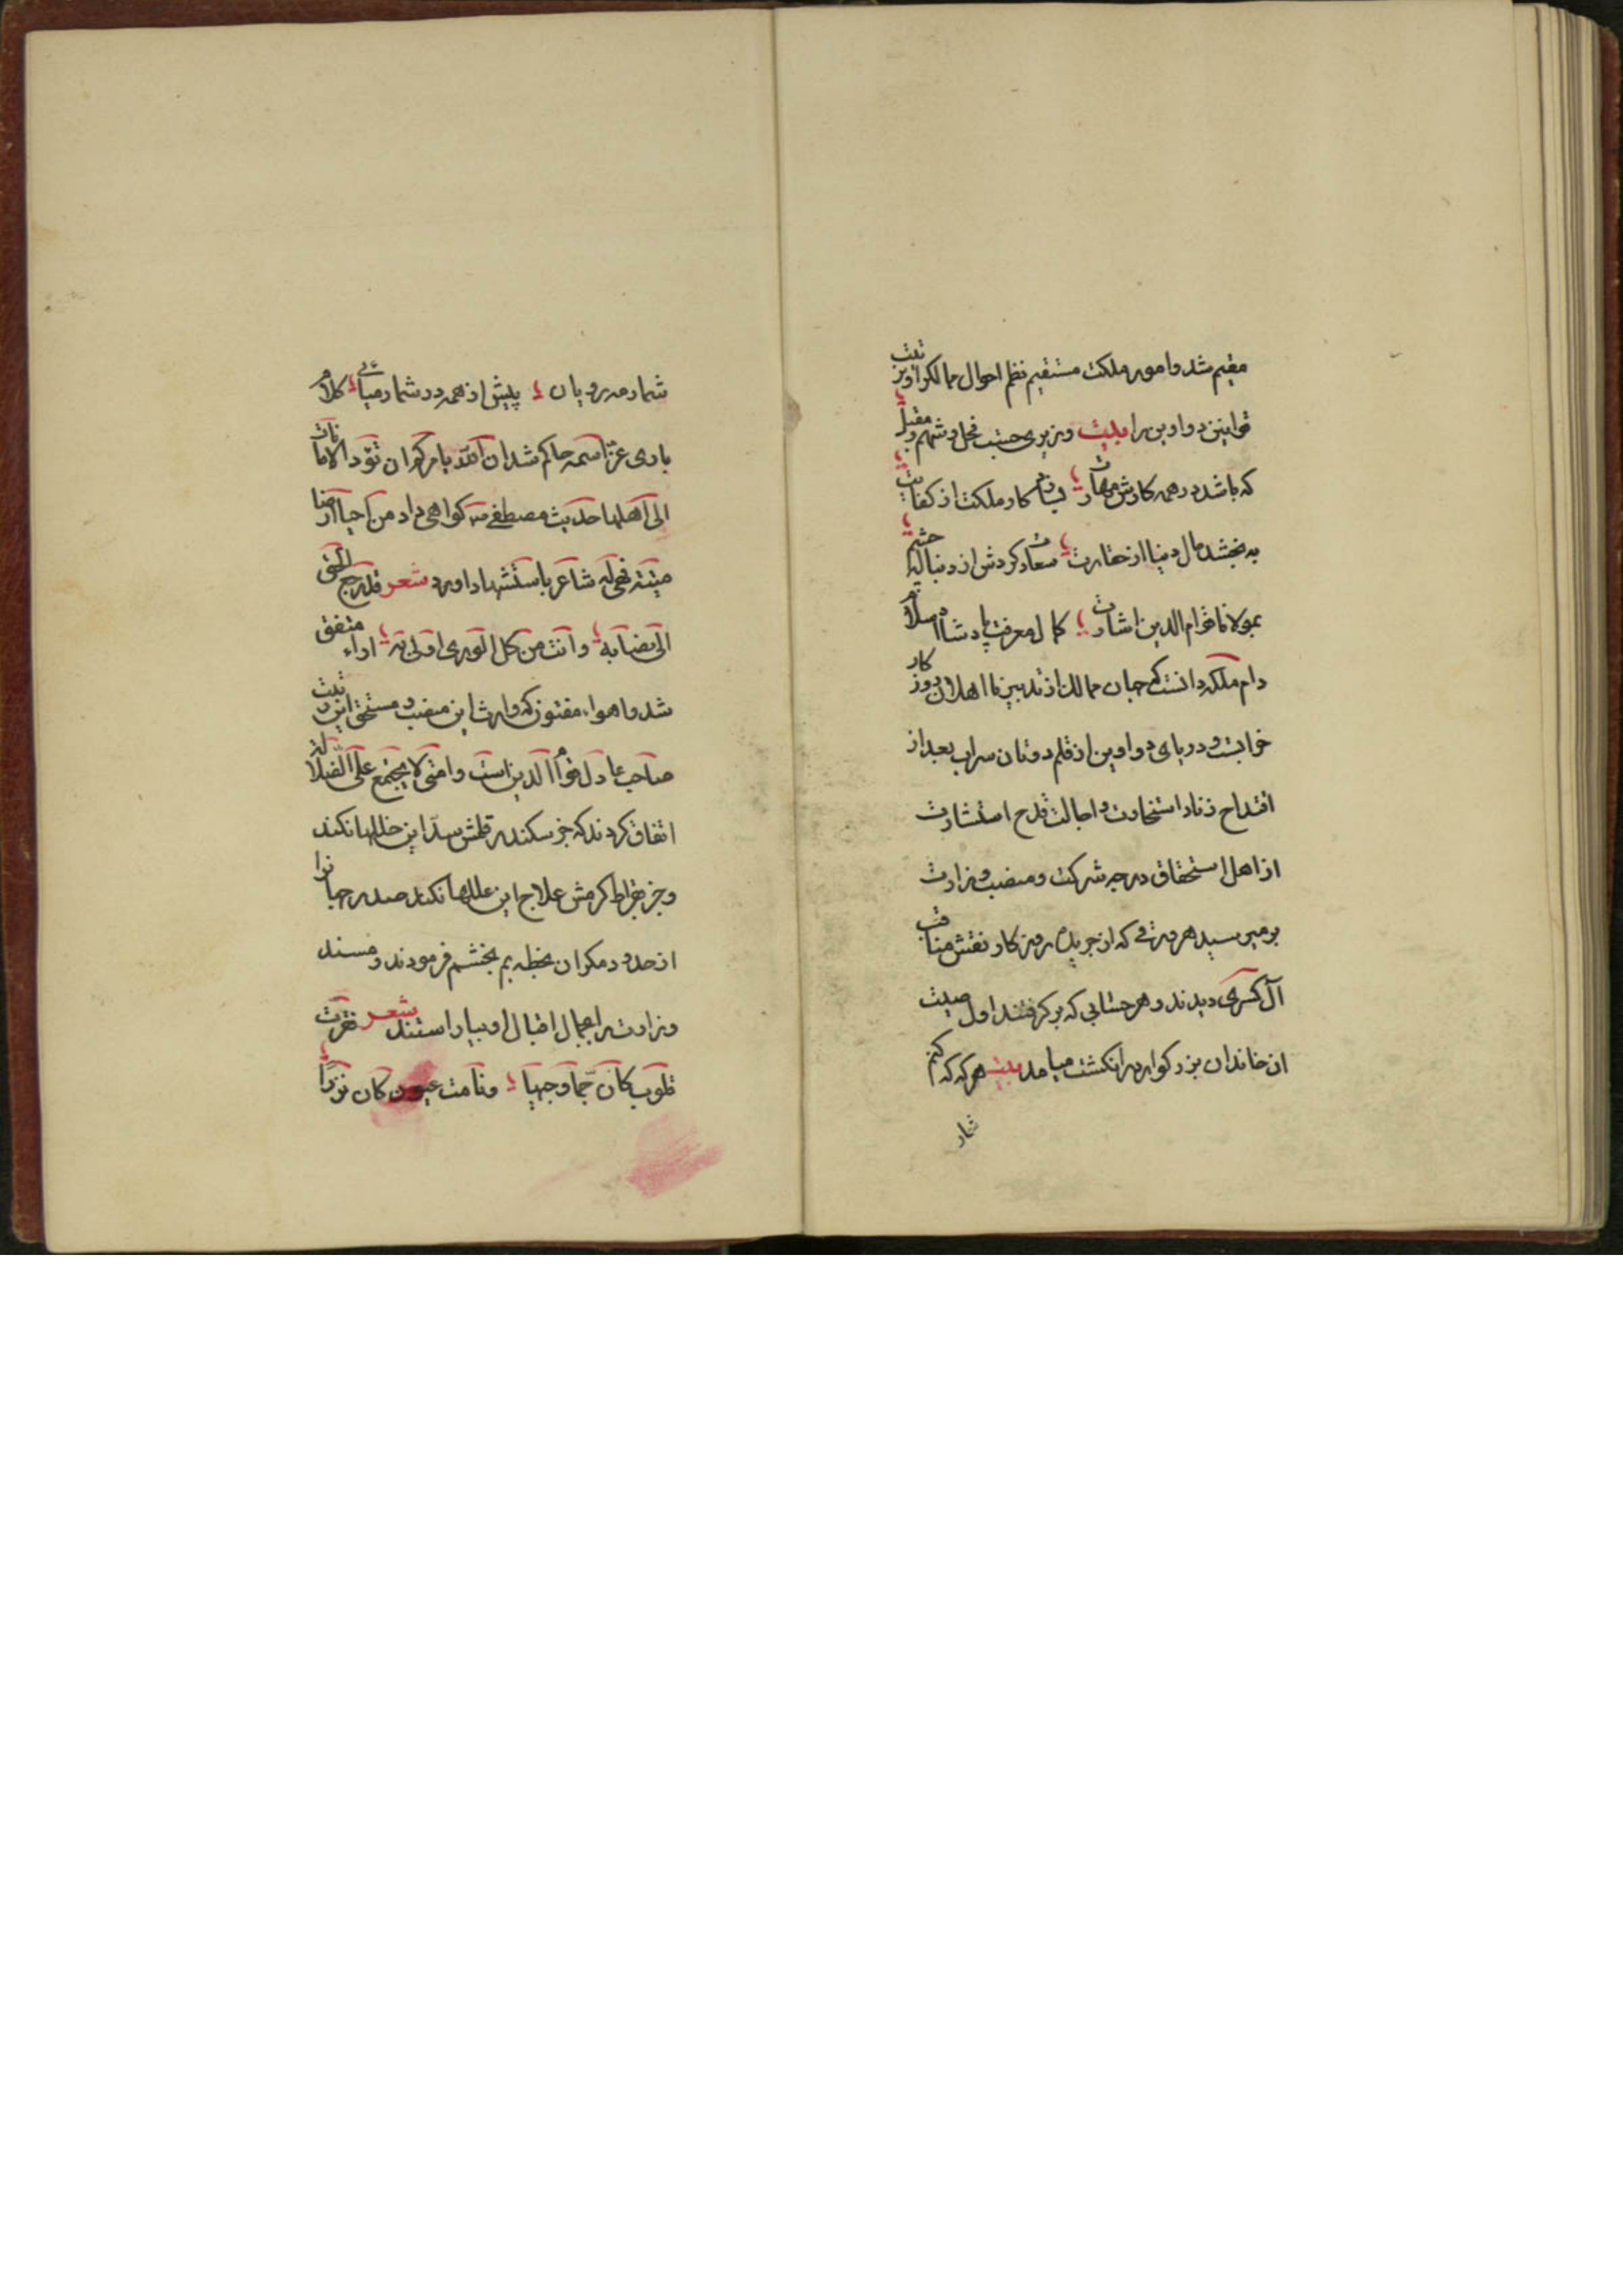 مقیم شد و امور ملکت مستقیم نظم احوال ممالک را و ترتیب
قوانین دواوین را بیت وزیری حسب فحل و شهم و مقبل
که باشد در همه کارش مهارت کار ملکت از کفایت
به بخشد مال دنیا از حقارت سعادت کردش از دنیا
بمولانا قوام الدین اشارت کمال معرفت پادشاه اسلام
دام ملکه دانست که جهان ممالک از تدبیر نا اهلان روزکار
خرابست و دریای دواوین از قلم دونان سراب بعد از
اقتداح زناد استخارت و اجالت قدح استشارت
از اهل استحقاق درجه شرکت و منصب وزارت
برمیرسید هر ورقی که از جریده روزکار نقش مناقب
آل کسری دیدند و هر حسابی که برکرفتند اول صیت
ان خاندان بزرکوار در انکشت میامد بیت هر که که کنم
شمار
شمار مه رویان پیش از همه در شمار میآئی کلام
باری عز اسمه حاکم شد ان الله یامرکم ان تؤدوا الامانات
الی اهلها حدیث مصطفی کواهی داد من احیا ارضا
میتة فهی له شاعر باستشهاد اورد شعر قد رجع الحق
الی نصابه وانت من کل الوری اولی به اراء متفق
شد و اهواء مفتون که وارث این منصب و مستحق این رتبت
صاحب عادل قوام الدین است و امتی لا یجتمع علی الضلالة
اتفاق کردند که جز سکندر قلمش سد این خللها نکند
و جز بقراط کرمش علاج این عللها نکند صدر جهانرا
از حدود مکران بخطه بم بخشم فرمودند و مسند
وزارت را بجمال اقبال او بیاراستند شعر فقرت
قلوب کان جما وجیبها ونامت عیون کان نزرا